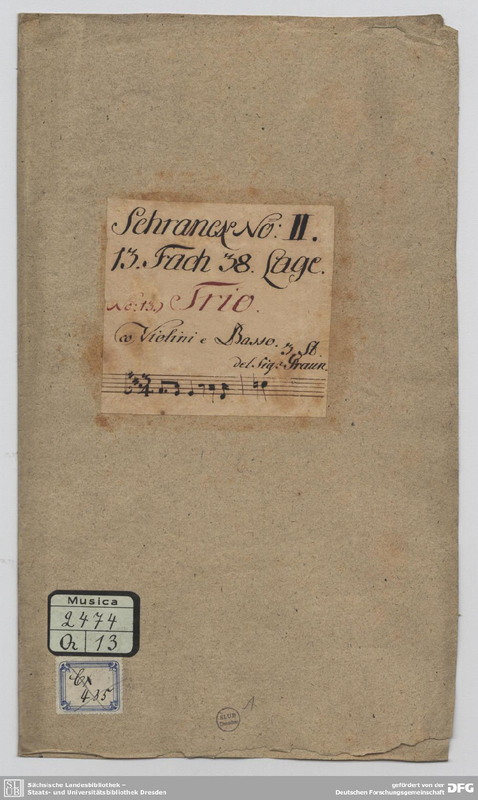 Schranck No: II.
13. Fach 38. Lage.
No: 13.) Trio.
co Violini e Basso. 3. St.
del Sigr. Graun.
Musica
2474
O 13
Cx
485
SLUB
Dresden
Sächsische Landesbibliothek –
Staats- und Universitätsbibliothek Dresden
gefördert von der
Deutschen Forschungsgemeinschaft
DFG